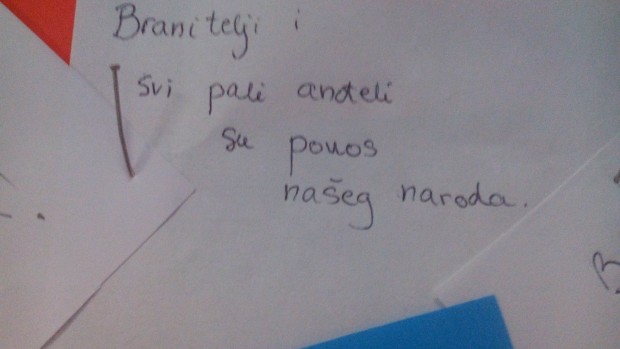 Branitelji i
svi pali anđeli
su ponos
našeg naroda.